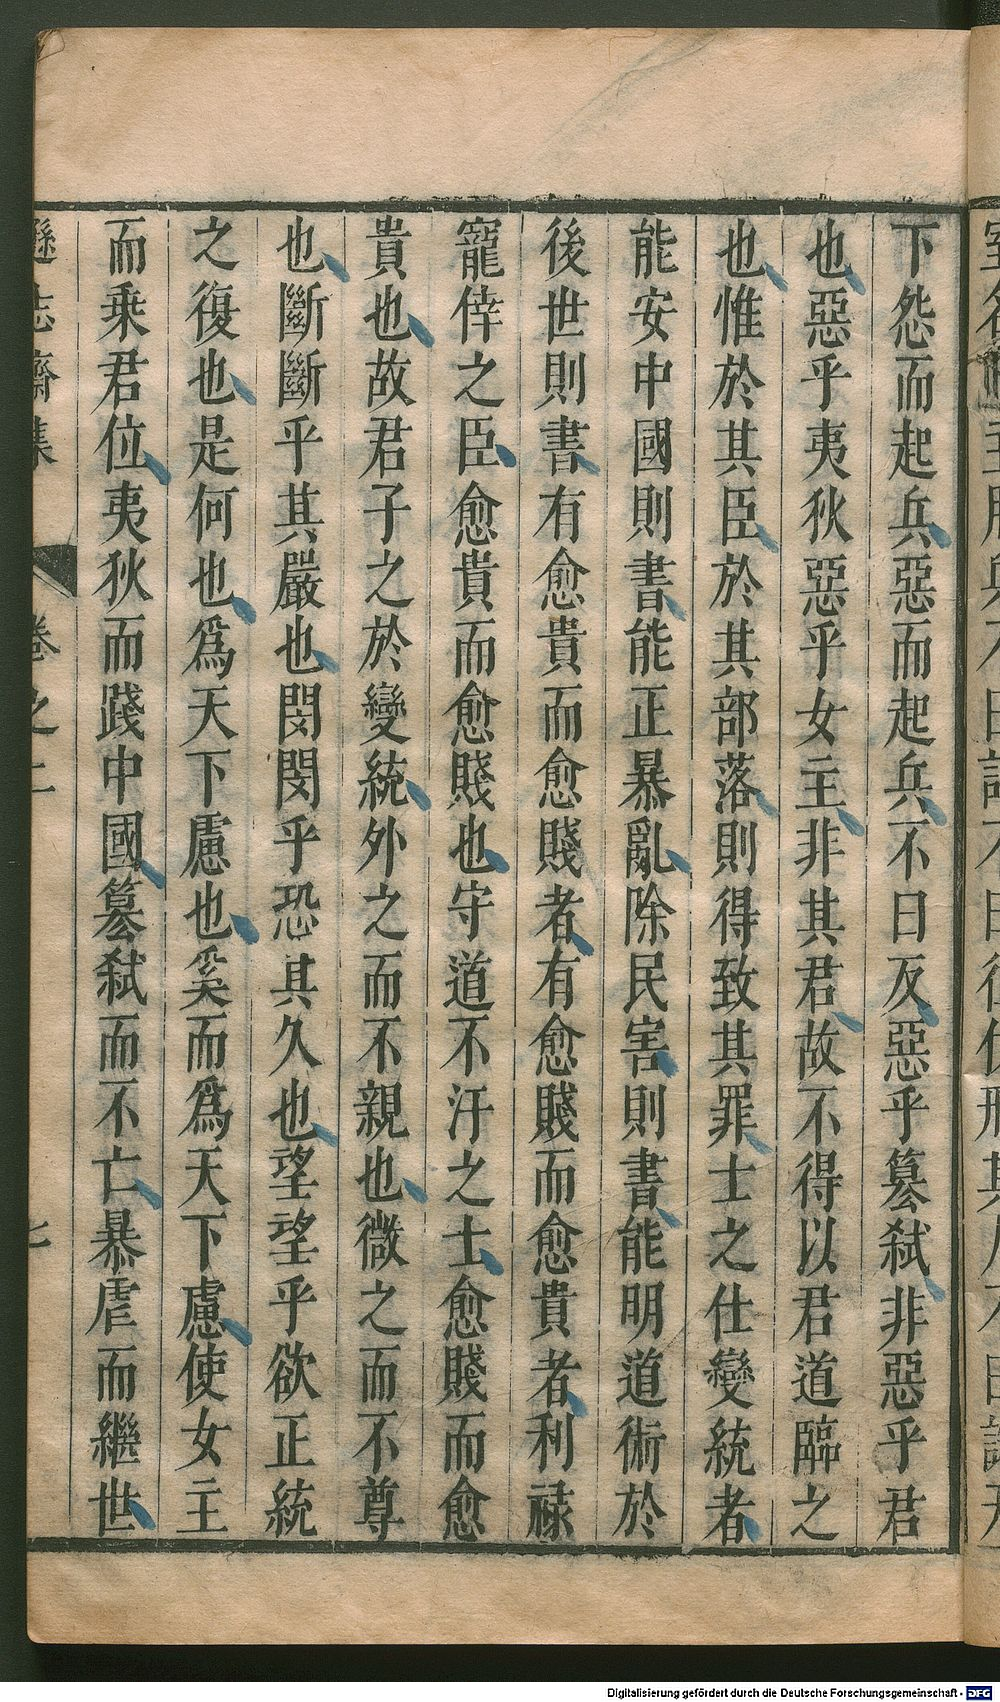 下怨而起兵惡而起兵不曰反惡乎簒弑非惡乎君
也惡乎夷狄惡乎女主非其君故不得以君道臨之
也惟於其臣於其部落則得致其罪士之仕變統者
能安中國則書能正暴亂除民害則書能明道術於
後世則書有愈貴而愈賤者有愈賤而愈貴者利祿
寵倖之臣愈貴而愈賤也守道不汙之士愈賤而愈
貴也故君子之於變統外之而不親也微之而不尊
也斷斷乎其嚴也閔閔乎恐其久也望望乎欲正統
之復也是何也爲天下慮也奚而爲天下慮使女主
而乘君位夷狄而踐中國簒弑而不亡暴虐而繼世
遜志齋集 卷之二 七
Digitalisierung gefördert durch die Deutsche Forschungsgemeinschaft - DFG